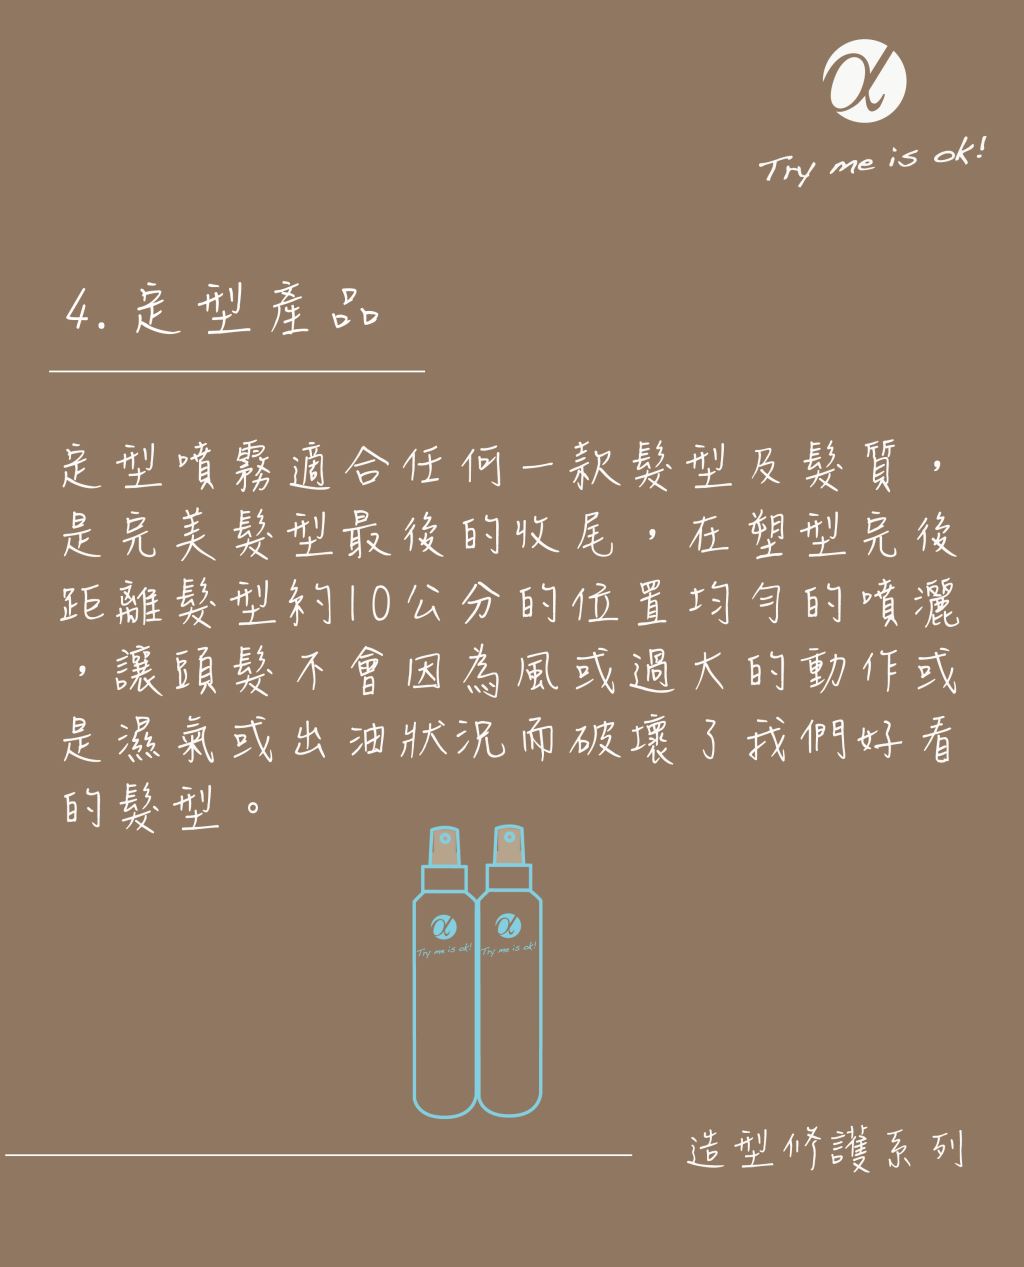 α
Try me is ok!
4. 定型產品
定型噴霧適合任何一款髮型及髮質，
是完美髮型最後的收尾，在塑型完後
距離髮型約10公分的位置均勻的噴灑
，讓頭髮不會因為風或過大的動作或
是濕氣或出油狀況而破壞了我們好看
的髮型。
α α
Try me is ok! Try me is ok!
造型修護系列